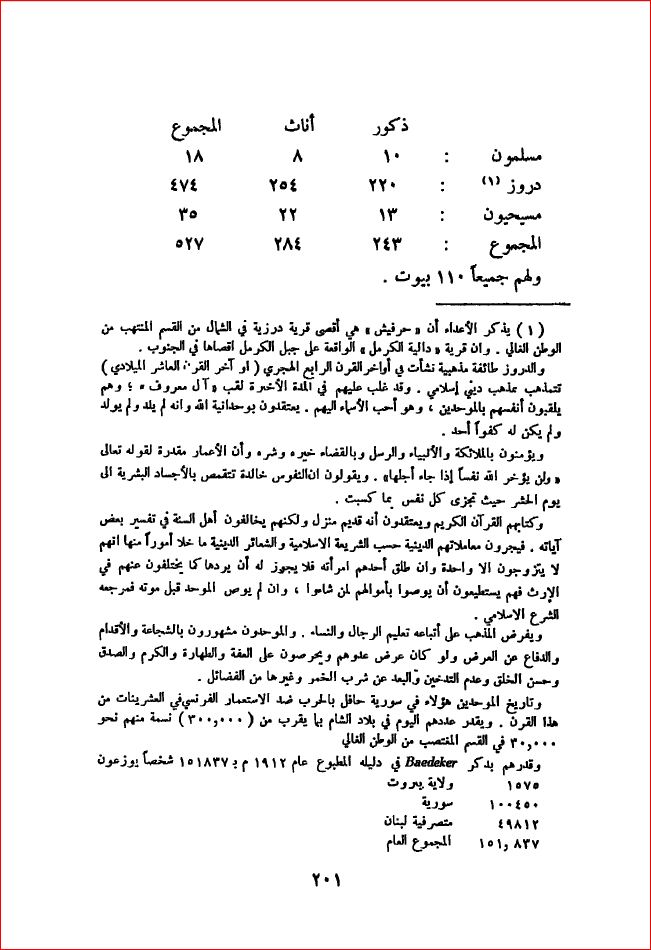 ذكور أناث المجموع
مسلمون : ١٠ ٨ ١٨
دروز (١) : ٢٢٠ ٢٥٤ ٤٧٤
مسيحيون : ١٣ ٢٢ ٣٥
المجموع : ٢٤٣ ٢٨٤ ٥٢٧
ولهم جميعاً ١١٠ بيوت .
( ١ ) يذكر الأعداء أن « حرفيش » هي أقصى قرية درزية في الشمال من القسم المنتهب من
الوطن الغالي . وان قرية « دالية الكرمل » الواقعة على جبل الكرمل اقصاها في الجنوب .
والدروز طائفة مذهبية نشأت في أواخر القرن الرابع الهجري ( او آخر القرن العاشر الميلادي )
تتمذهب بمذهب ديني إسلامي . وقد غلب عليهم في المدة الأخيرة لقب « آل معروف » ؛ وهم
يلقبون أنفسهم بالموحدين ، وهو أحب الأسماء اليهم . يعتقدون بوحدانية الله وانه لم يلد ولم يولد
ولم يكن له كفواً أحد .
ويؤمنون بالملائكة والأنبياء والرسل وبالقضاء خيره وشره وأن الأعمار مقدرة لقوله تعالى
« ولن يؤخر الله نفساً إذا جاء أجلها » . ويقولون ان النفوس خالدة تتقمص بالأجساد البشرية الى
يوم الحشر حيث تجزى كل نفس بما كسبت .
وكتابهم القرآن الكريم ويعتقدون أنه قديم منزل ولكنهم يخالفون أهل السنة في تفسير بعض
آياته . فيجرون معاملاتهم الدينية حسب الشريعة الاسلامية والشعائر الدينية ما خلا أموراً منها انهم
لا يتزوجون الا واحدة وان طلق أحدهم امرأته فلا يجوز له أن يردها كما يختلفون عنهم في
الإرث فهم يستطيعون أن يوصوا بأموالهم لمن شاءوا ، وان لم يوص الموحد قبل موته فمرجعه
الشرع الاسلامي .
ويفرض المذهب على أتباعه تعليم الرجال والنساء . والموحدون مشهورون بالشجاعة والأقدام
والدفاع عن العرض ولو كان عرض عدوهم ويحرصون على العفة والطهارة والكرم والصدق
وحسن الخلق وعدم التدخين والبعد عن شرب الخمر وغيرها من الفضائل .
وتاريخ الموحدين هؤلاء في سورية حافل بالحرب ضد الاستعمار الفرنسي في العشرينات من
هذا القرن . ويقدر عددهم اليوم في بلاد الشام بما يقرب من ( ٣٠٠,٠٠٠ ) نسمة منهم نحو
٣٠,٠٠٠ في القسم المغتصب من الوطن الغالي
وقدرهم بدكر Baedeker في دليله المطبوع عام ١٩١٢ م بـ ١٥١٨٣٧ شخصاً يوزعون
١٥٧٥ ولاية بيروت
١٠٠٤٥٠ سورية
٤٩٨١٢ متصرفية لبنان
١٥١,٨٣٧ المجموع العام
٢٠١